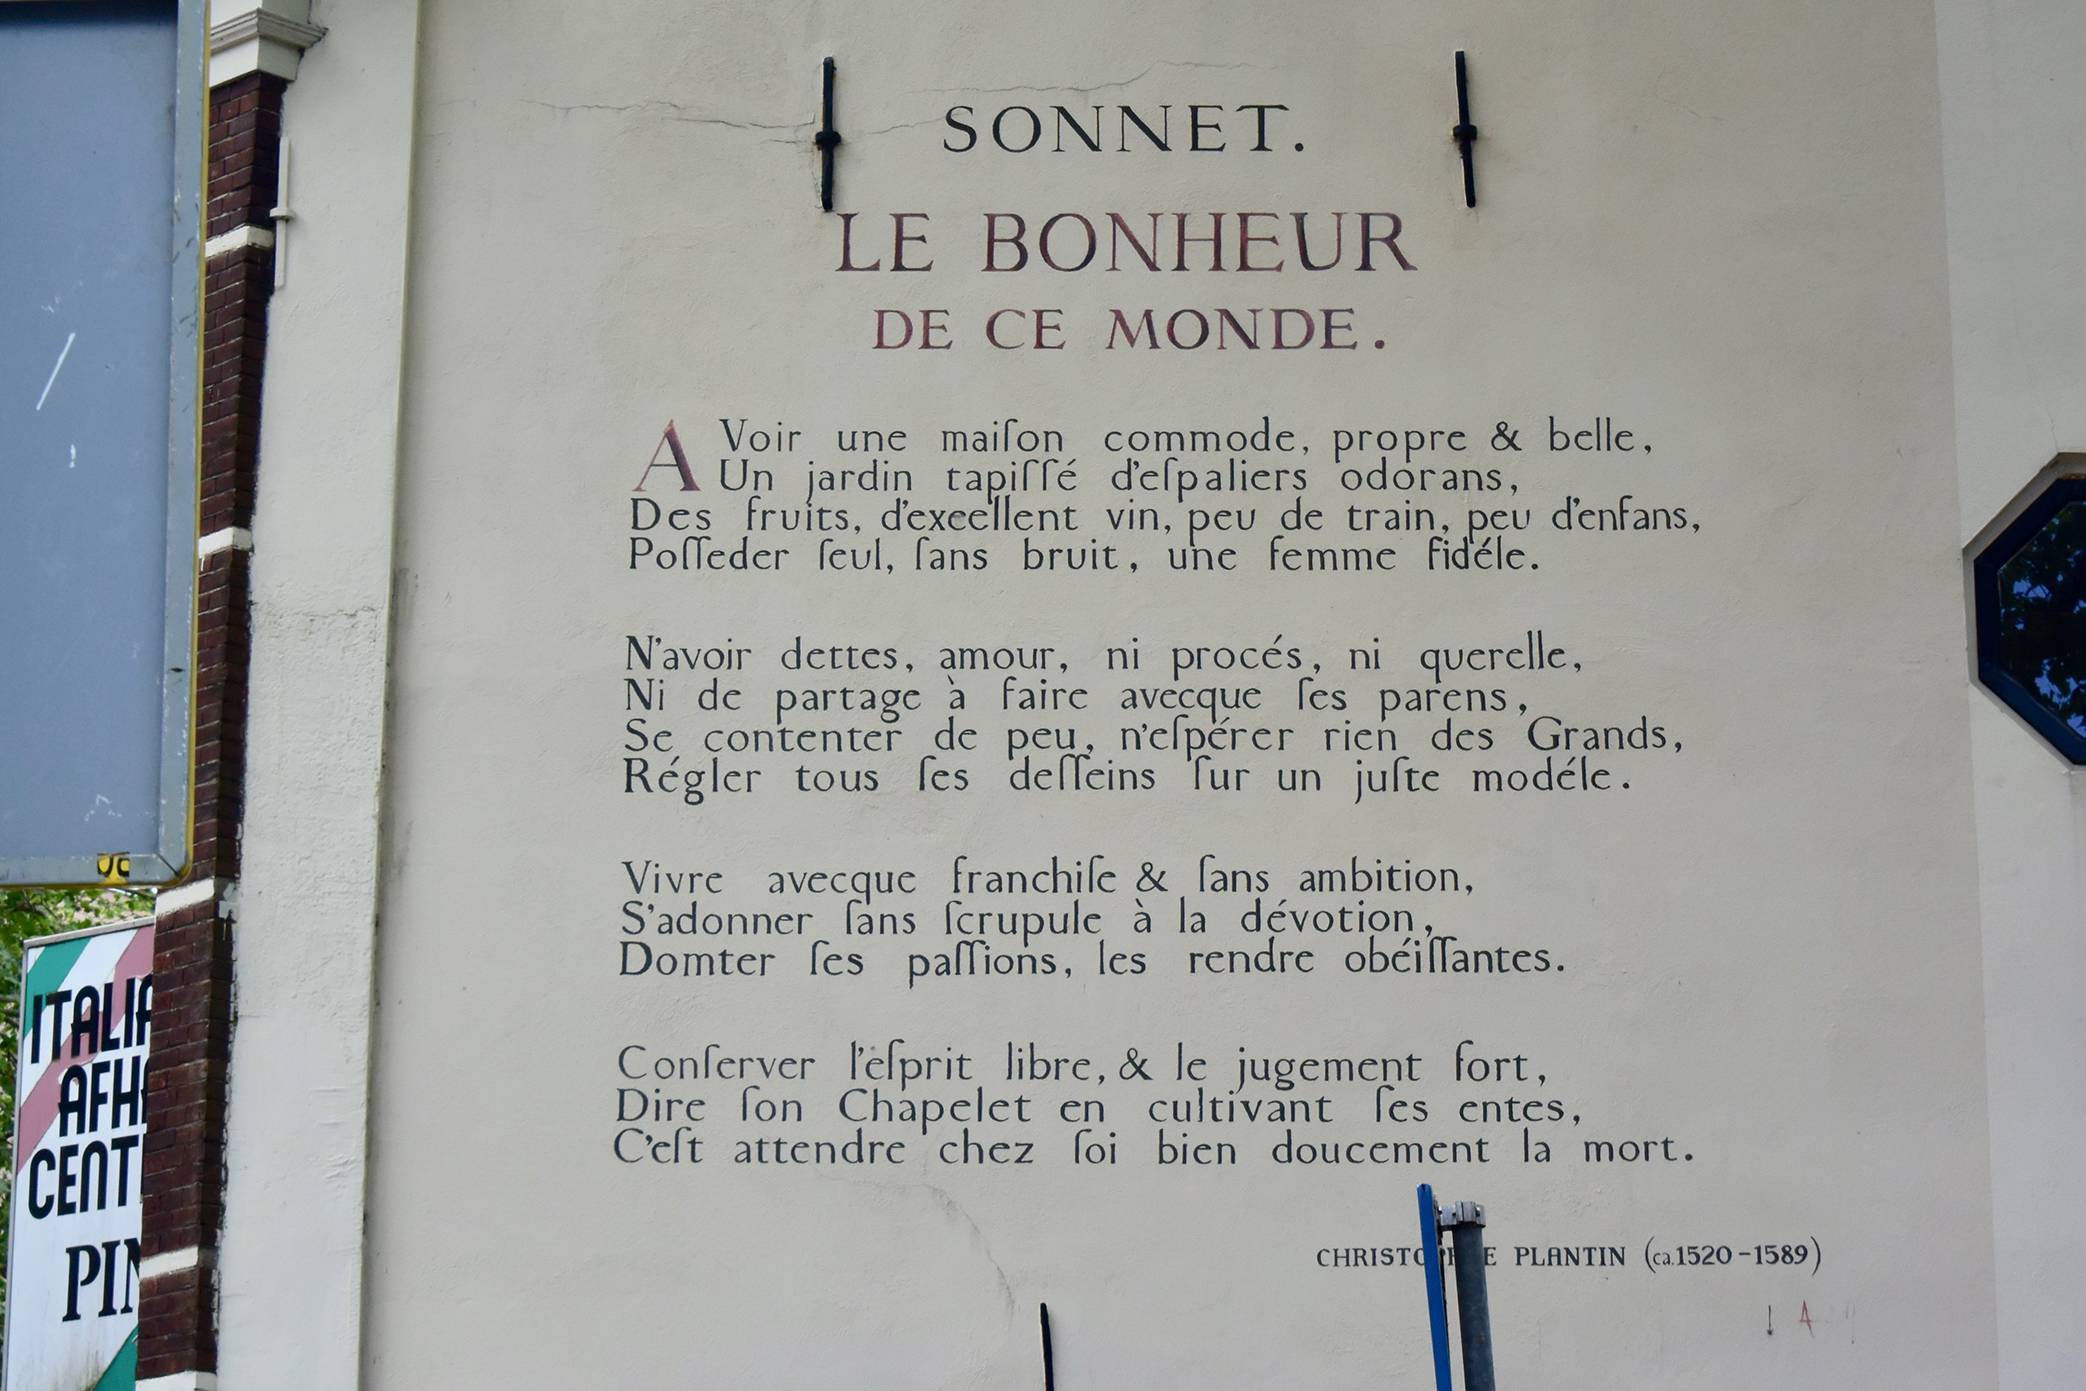 SONNET.
LE BONHEUR
DE CE MONDE.
AVoir une maiſon commode, propre & belle,
Un jardin tapiſſé d'eſpaliers odorans,
Des fruits, d'exeellent vin, peu de train, peu d'enfans,
Poſſeder ſeul, ſans bruit, une femme fidéle.
N'avoir dettes, amour, ni procés, ni querelle,
Ni de partage à faire avecque ſes parens,
Se contenter de peu, n'eſpérer rien des Grands,
Régler tous ſes deſſeins ſur un juſte modéle.
Vivre avecque franchiſe & ſans ambition,
S'adonner ſans ſcrupule à la dévotion,
Domter ſes paſſions, les rendre obéiſſantes.
Conſerver l'eſprit libre, & le jugement fort,
Dire ſon Chapelet en cultivant ſes entes,
C'eſt attendre chez ſoi bien doucement la mort.
PLANTIN (ca.1520-1589)